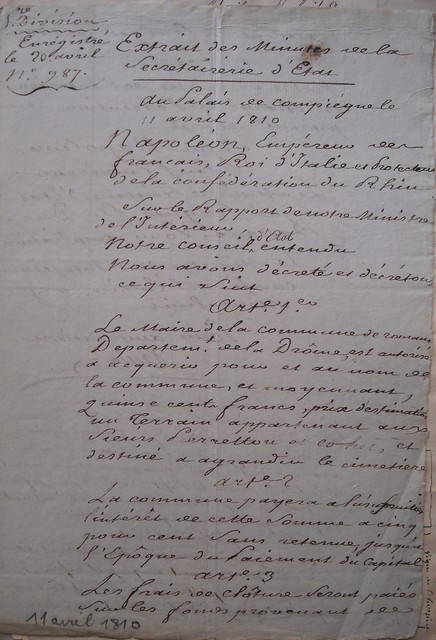 1.re Division
Enregistré
le 20 avril
N.o 987.
Extrait des Minutes de la
Secrétairerie d'Etat
au Palais de compiegne le
11 avril 1810
Napoléon, Empereur des
francais, Roi d'Italie et Protecteur
de la confédération du Rhin
Sur le Rapport de notre Ministre
de l'Interieur
Notre conseil d'Etat entendu
Nous avons décreté et décrétons
ce qui Suit
Art.e 1.er
Le Maire de la commune de romans
Departem.t de la Drôme, est autorisé
a acquerir pour et au nom de
la commune, et moyennant,
quinze cents francs, prix d'estimation
un Terrain appartenant aux
Sieurs Perretton et et
destiné a agrandir le cimetiere
art.e 2
La commune payera a
l'intérêt de cette Somme a cinq
pour cent Sans retenue jusqu'a
l'Epôque du Paiement du Capital
art.e 3
Les frais de clôture Seront paiés
Sur les fonds provenant de
11 avril 1810